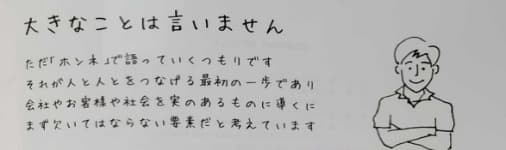 大きなことは言いません
ただ「ホンネ」で語っていくつもりです
それが人と人とをつなげる最初の一歩であり
会社やお客様や社会を実のあるものに導くに
まず欠いてはならない要素だと考えています